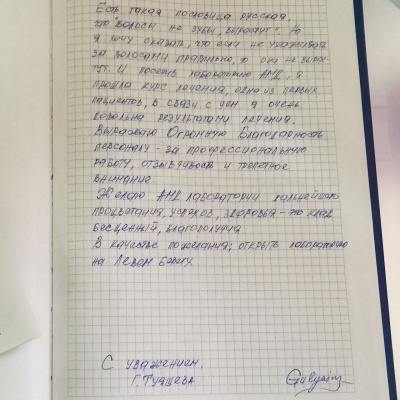 Есть такая пословица русская,
что "Волосы не зубы, вырастут". Но
я хочу сказать, что если не ухаживать
за волосами правильно, то они не вырас-
тут. И посетив лабораторию АМД, я
прошла курс лечения, одна из первых
пациентов, в связи с чем я очень
довольна результатами лечения.
Выражаю Огромную Благодарность
персоналу - за профессиональную
работу, отзывчивость и трепетное
внимание
Желаю АМД лаборатории дальнейшего
процветания, успехов, здоровья - это клад
бесценный, благополучия
В качестве пожелания; открыть лабораторию
на Левом берегу.
С уважением,
Г. Туашева